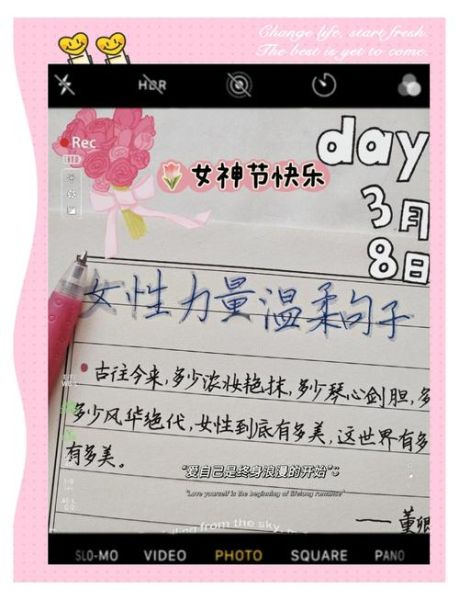 Change life, start fresh.
The best is yet to come.
HDR
Rec
day
女神节快乐
3月
8日
女性力量温柔句子
古往今来,多少浓妆艳抹,多少琴心剑胆,多
多少风华绝代,女性到底有多美,这世界有多
有多美。
“爱自己是终身浪漫的开始”
"Love yourself is the beginning of lifelong romance"
from the sky,
——董卿
SLO-MO VIDEO PHOTO SQUARE PANO